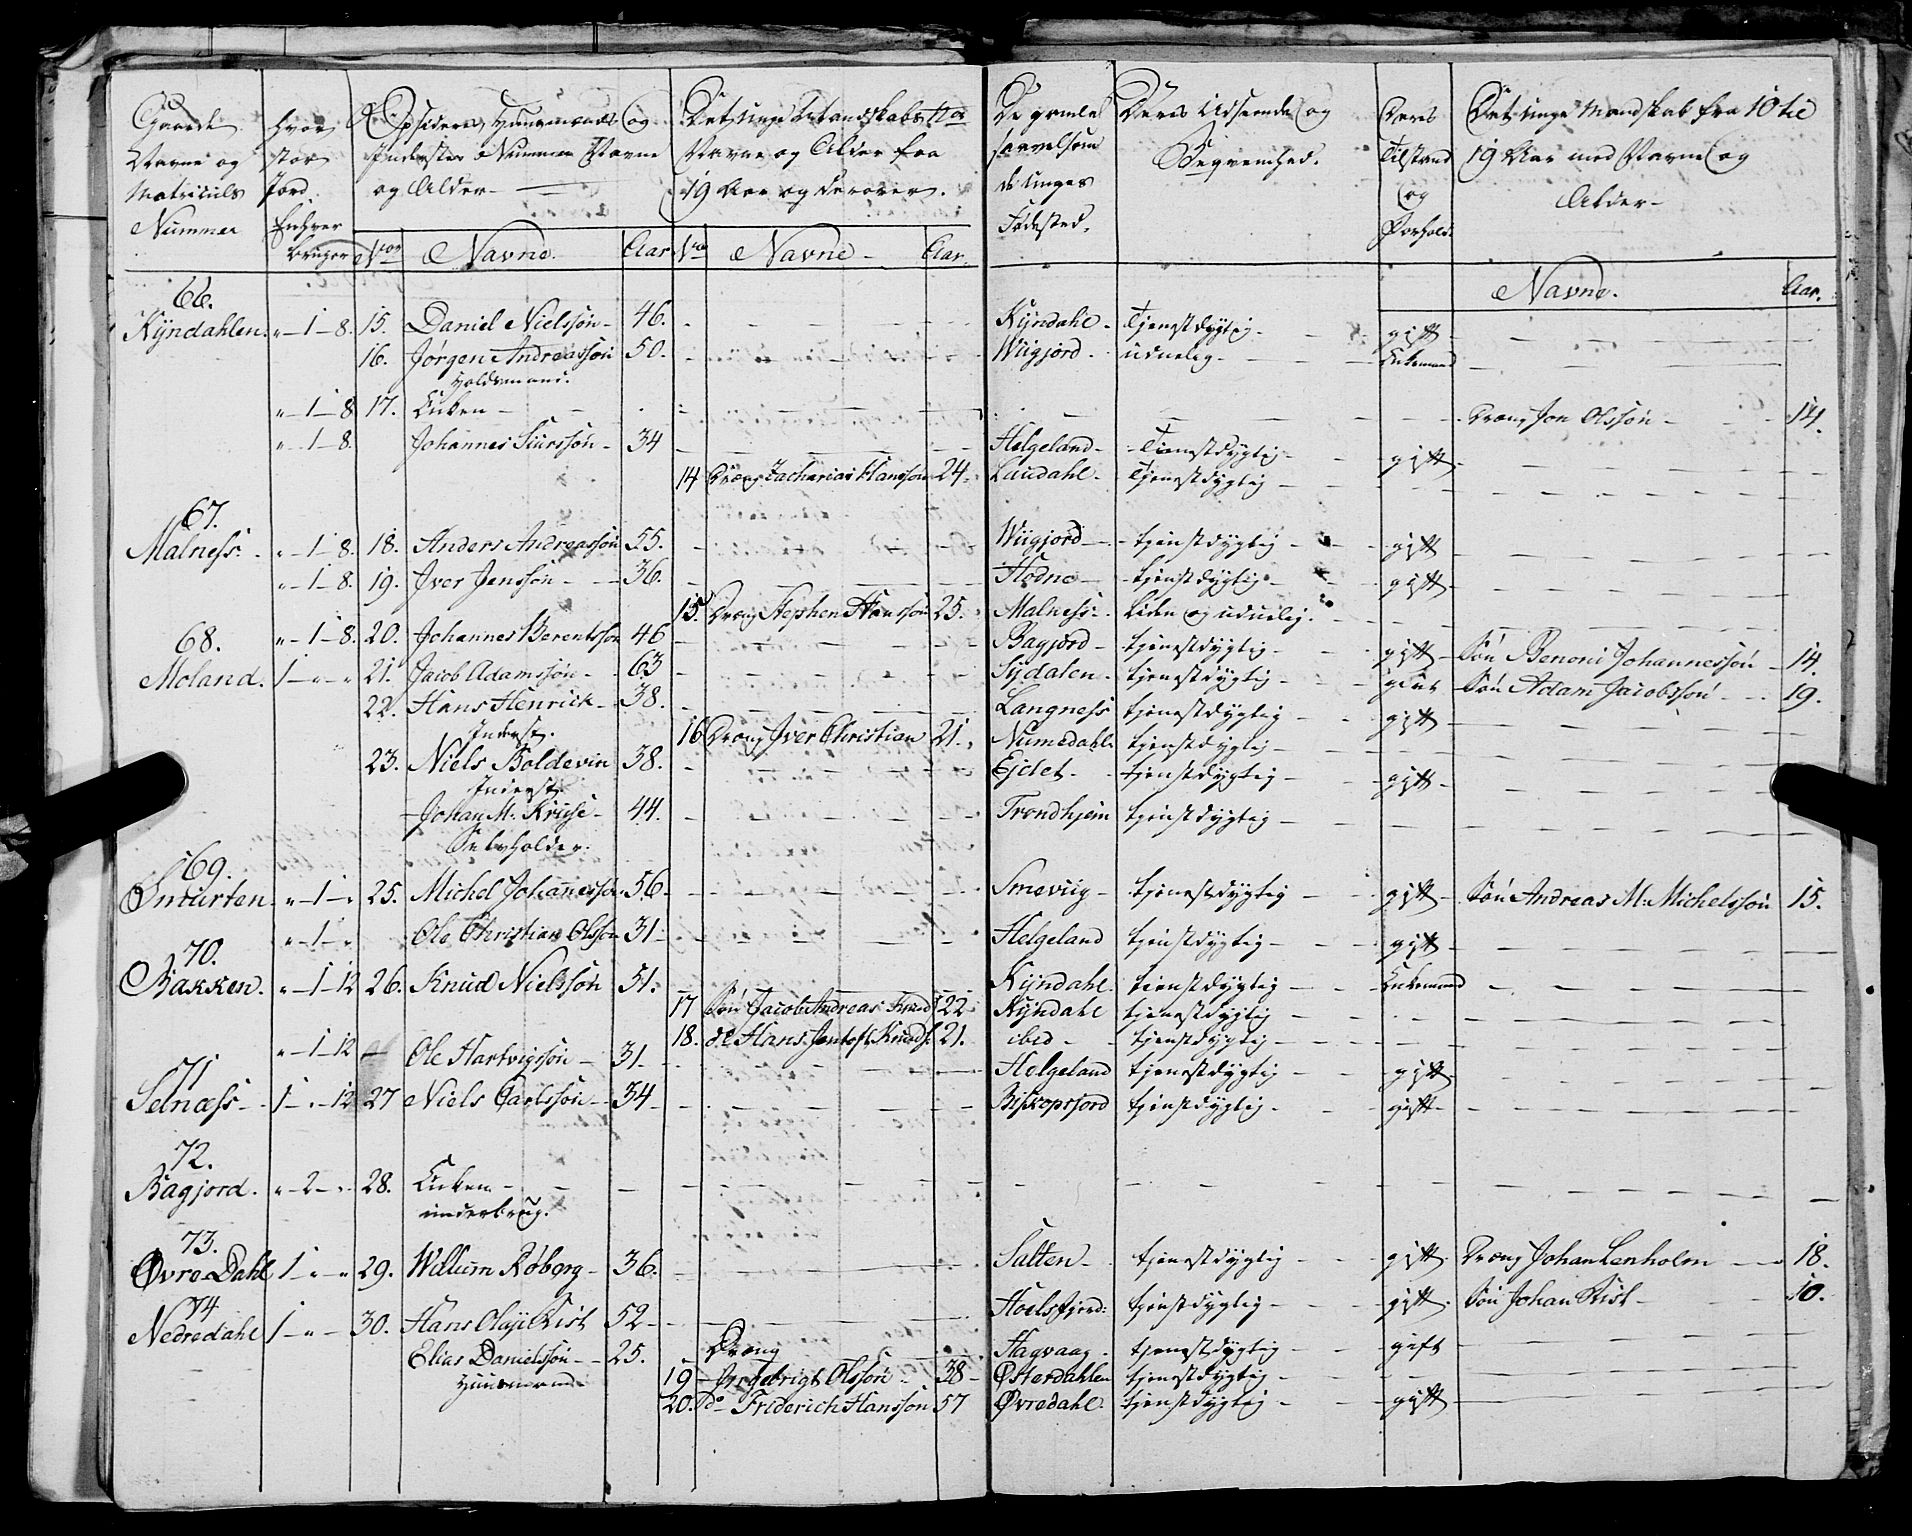 Gaarde Navne og Matriculs Nummer
hvor stor Jord Enhver bruger
Opsiders, Huusmænds og Inderster Nummer Navne og Alder
Det unge Mandskabs No Navne og Alder fra 19 Aar og derover.
De gamle saavelsom de unges Fødested.
Deres Udseende og Begvemhed.
Deres Tilstand og Forhold.
Det unge Mandskab fra 10 til 19 Aar med Navne og Alder
Nor Navne. Aar No Navne Aar. Navne. Aar.
66.
Kÿndahlen. " 1 8. 15. Daniel Nielssøn 46. Kÿndahl tjenestdygtig gift
16. Jørgen Andreassøn 50. Wiigjord uduelig Enkemand
Holdsmand.
" 1 8 17. Enken Dreng Jon Olssøn 14.
" 1 8. Johannes Siurssøn 34 Helgeland Tienestdygtig gift
14 Dreng Zacharias Hanssøn 24. Laudahl tjenestdygtig
67.
Malness. " 1 8. 18. Anders Andreassøn 55. Wiigjord tjenstdygtig gift
" 1 8. 19. Iver Jenssøn 36. Hodne tjenstdygtig gift
15. Dreng Stephen Hanssøn 25. Malness liden og uduelig.
68. " 1 8. 20. Johannes Berentssøn 46 Bagjord tjenestdygtig gift Søn Benoni Johannessøn 14.
Moland. 1 " " 21. Jacob Adamssøn 63 Sÿdalen tjenestdygtig gift Søn Adam Jacobssøn 19.
22. Hans Henrick 38. Langness tjenestdygtig gift
Inderst. 16 Dreng Iver Christian 21. Numedahl tjenstdygtig
23. Niels Boldevin 38. Ejdet tjenstdygtig gift
Inderst
Johan M. Kruse 44. Trondhjem tjenstdygtig
Selvholder.
69.
" 1 " 25. Michel Johannessøn 56 Smeviig tjenestdygtig gift Søn Andreas M. Michelssøn 15.
" 1 " Ole Christian Olssøn 31 Helgeland tjenstdygtig gift
70.
Bakken. " 1 12 26. Knud Nielssøn 51. Kÿndahl tienstdygtig Enkemand
17 Søn Jacob Andreas Knud 22 Kÿndahl tjenestdygtig
18. do Hans Jentoft Knuds. 21. ibid tjenstdygtig
" 1 12 Ole Hartvigssøn 31 Helgeland tjenestdygtig gift
71
Selnæss 1 " 12 27 Niels Carlssøn 34 Biskopsfjord tjenstdygtig gift
72.
Bagjord. " 2 " 28. Enken
underbrug.
73.
Øvre Dahl 1 " " 29. Willum Røberg 36. Salten tjenestdygtig gift Dreng Johan Lenholm 18.
74
Nedredahl 1 " 30. Hans Olaji Kist 52 Hoelsfjord: tjenstdygtig gift Søn Johan Kist 10.
Elias Danielssøn 25. Dreng Hagvaag tjenestdygtig gift
Huusmand 19 Ingebrigt Olssøn 38 Østerdahlen tjenstdygtig
20. Do Friderich Hanssøn 57 Øvredahl tjenstdygtig gift